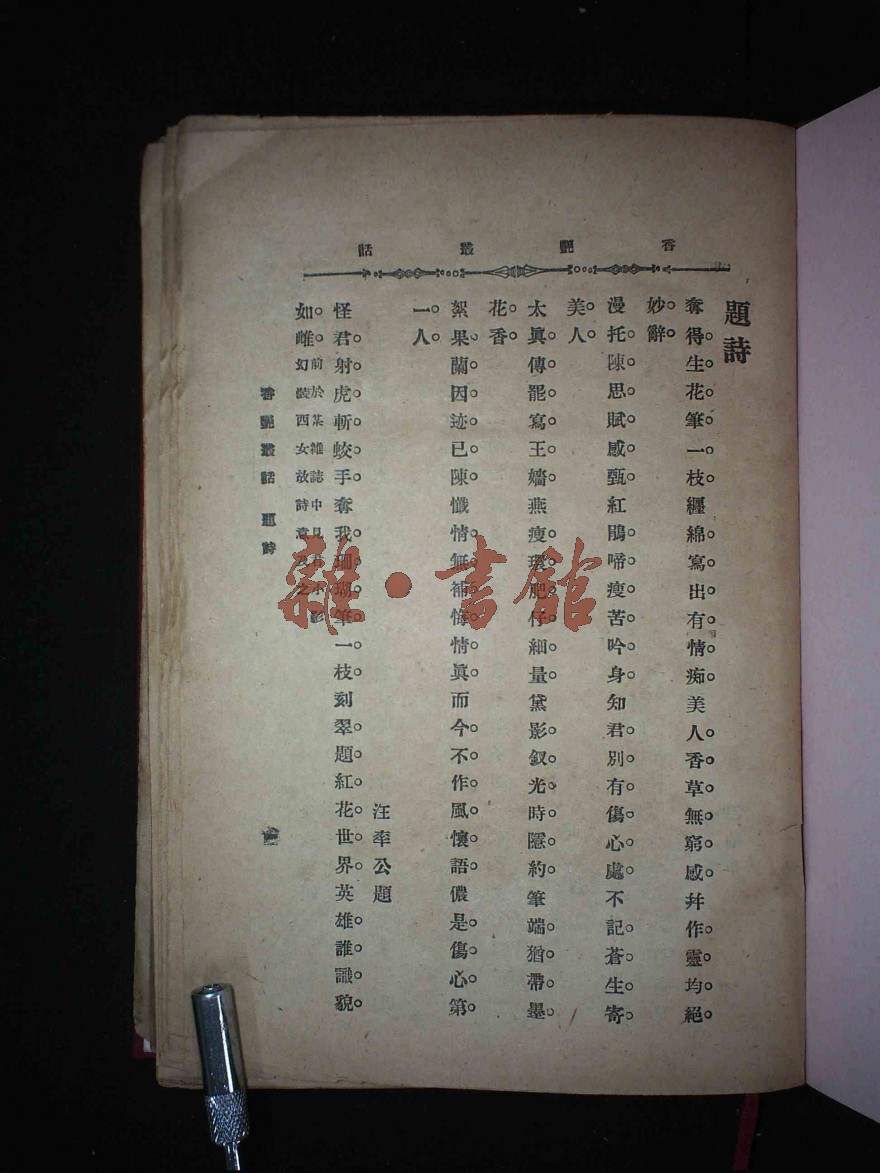 香艷叢話
題詩
奪得。生花。筆。一枝。纏綿。寫出有。情痴美人。香。草。無。窮。感幷作。靈。均。絕。
妙。辭。
漫托。陳思賦感甄紅鵑啼瘦苦吟身知君。別。有。傷。心。處。不記。蒼。生。寄。
美。人。
太眞。傳。罷。寫。王。嬙。燕瘦。環。肥。仔細。量黛影。釵。光。時。隱。約。筆端。猶。帶。墨。
花。香。
絮。果。蘭。因。迹。已。陳懺情。無。補。悔。情。眞而今。不。作。風。懷。語。儂是。傷。心。第。
一。人。
汪率公題
怪君。射。虎。斬蛟。手。奪我。珊。瑚。筆。一枝。刻翠。題。紅。花。世。界。英雄。誰。識。貌。
如。雌。前於某雜誌中見君小影幻裝西女故詩意及之
香艷叢話 題詩
雜·書館